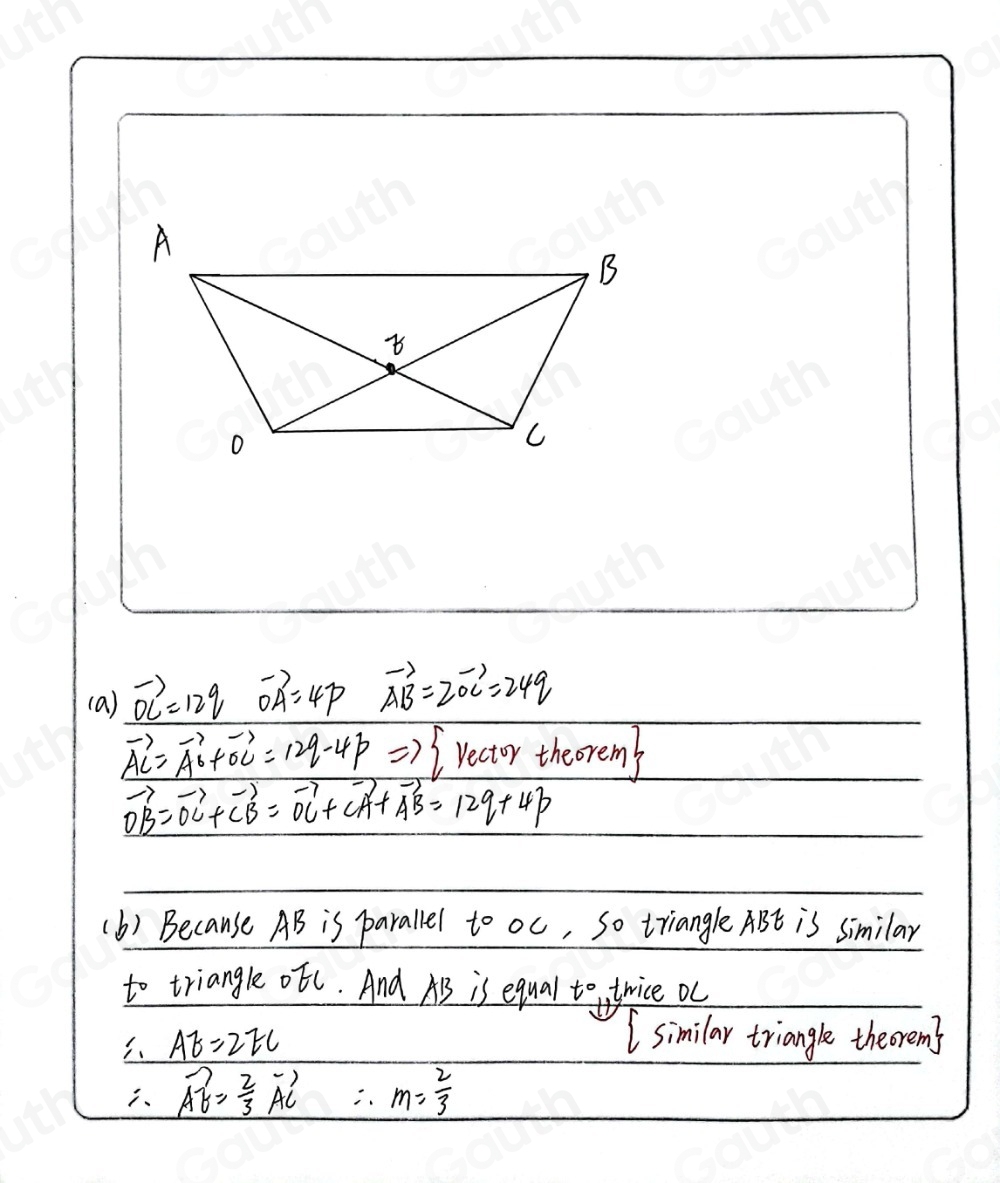 A
B
E
O
C
(a) →OC=12q →OA=4p →AB=2→OC=24q
→AC=→AO+→OC=12q-4p => {Vector theorem}
→OB=→OC+→CB=→OC+→CA+→AB=12q+4p
(b) Because AB is parallel to OC, so triangle ABE is similar
to triangle OEC. And AB is equal to twice OC
{Similar triangle theorem}
∴ AE=2EC
∴ →AE=2/3 →AC ∴ m=2/3